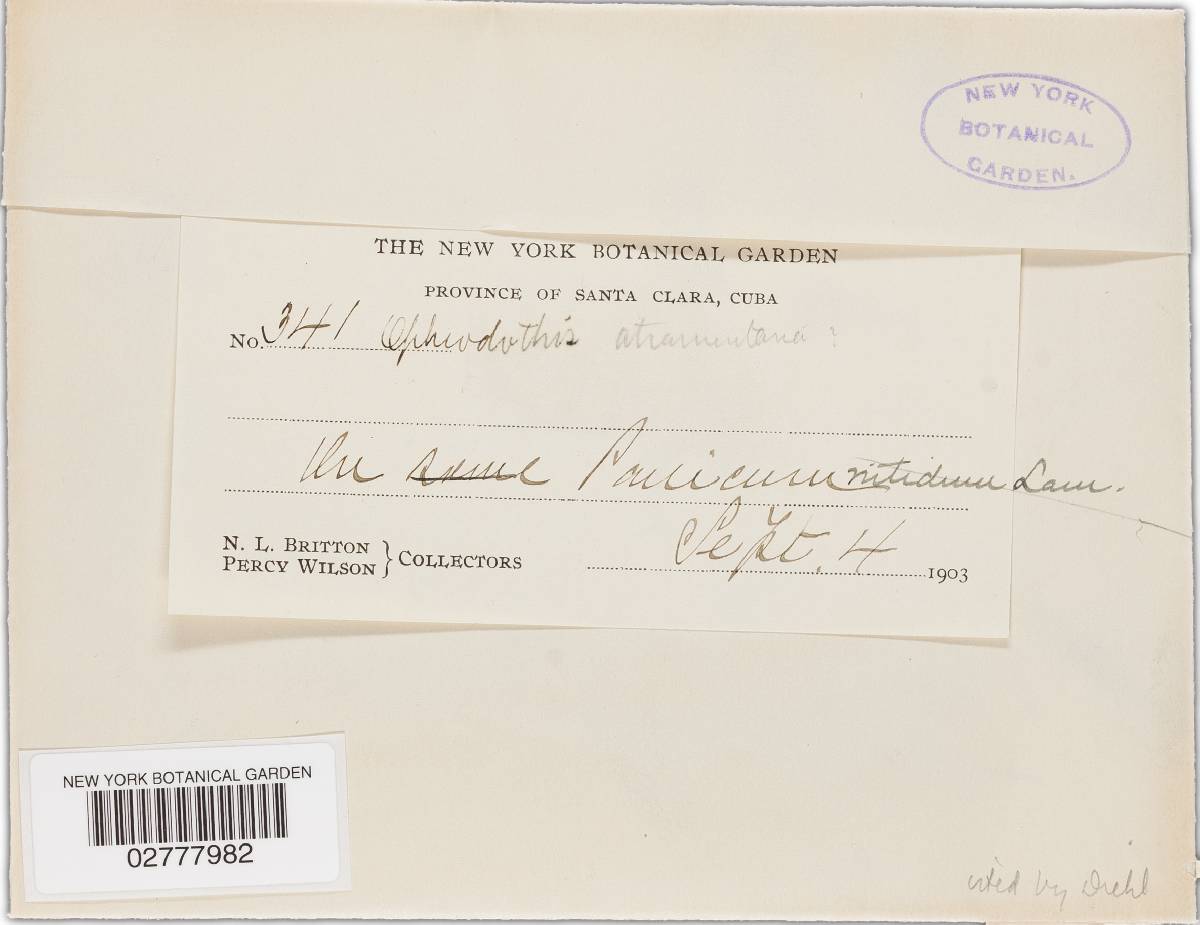 NEW YORK
BOTANICAL
GARDEN.
THE NEW YORK BOTANICAL GARDEN
PROVINCE OF SANTA CLARA, CUBA
No. 341 Ophiodothis atramentaria ?
On some Panicum nitidum Lam.
Sept. 4 1903
N. L. BRITTON
PERCY WILSON } COLLECTORS
NEW YORK BOTANICAL GARDEN
02777982
cited by Diehl